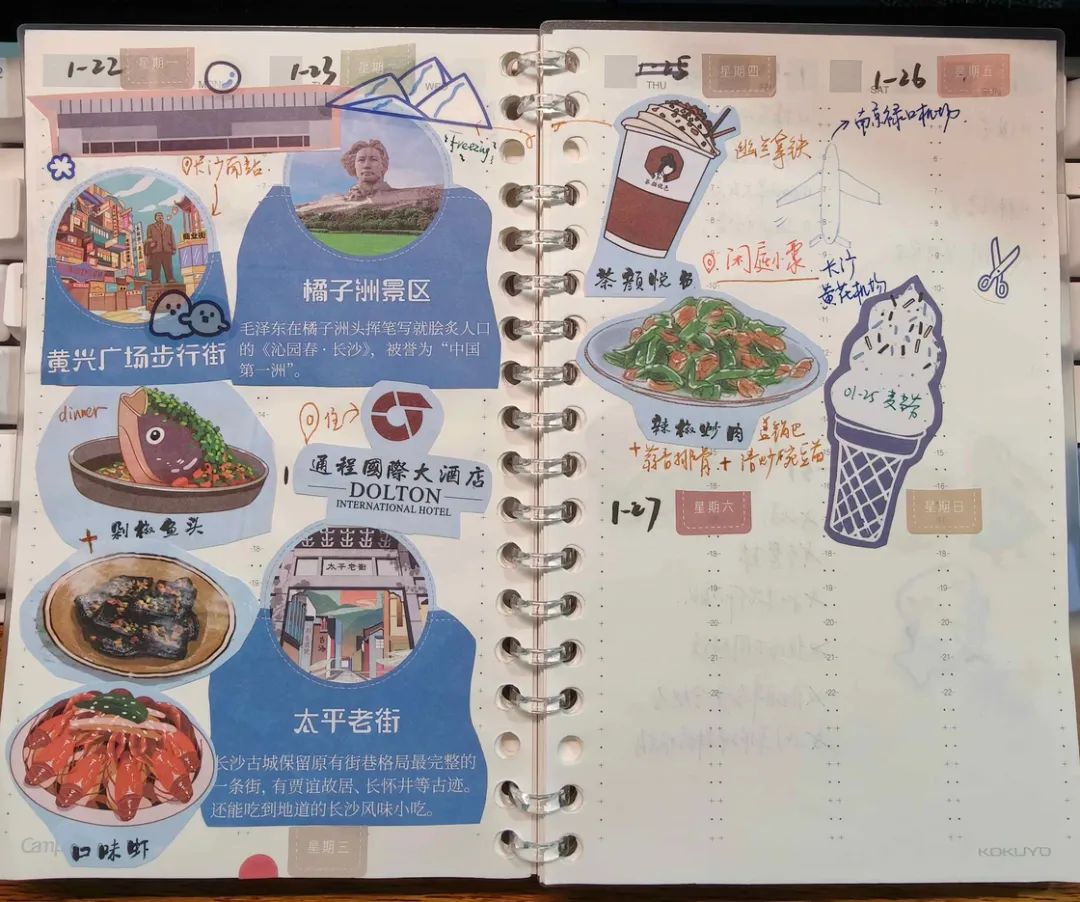 1-22
星期一
1-23
freezing
长沙南站
商业街
黄兴广场步行街
橘子洲景区
毛泽东在橘子洲头挥笔写就脍炙人口
的《沁园春·长沙》，被誉为“中国
第一洲”。
dinner
住
通程國際大酒店
DOLTON
INTERNATIONAL HOTEL
+ 剁椒鱼头
太平老街
太平老街
长沙古城保留原有街巷格局最完整的
一条街，有贾谊故居、长怀井等古迹。
还能吃到地道的长沙风味小吃。
口味虾
星期三
THU
星期四
1-26
SAT
星期五
幽兰拿铁
茶颜悦色
南京禄口机场
长沙
黄花机场
辣椒炒肉
盖锅巴
+ 蒜香排骨 + 清炒豌豆苗
01-25
1-27
星期六
星期日
KOKUYO